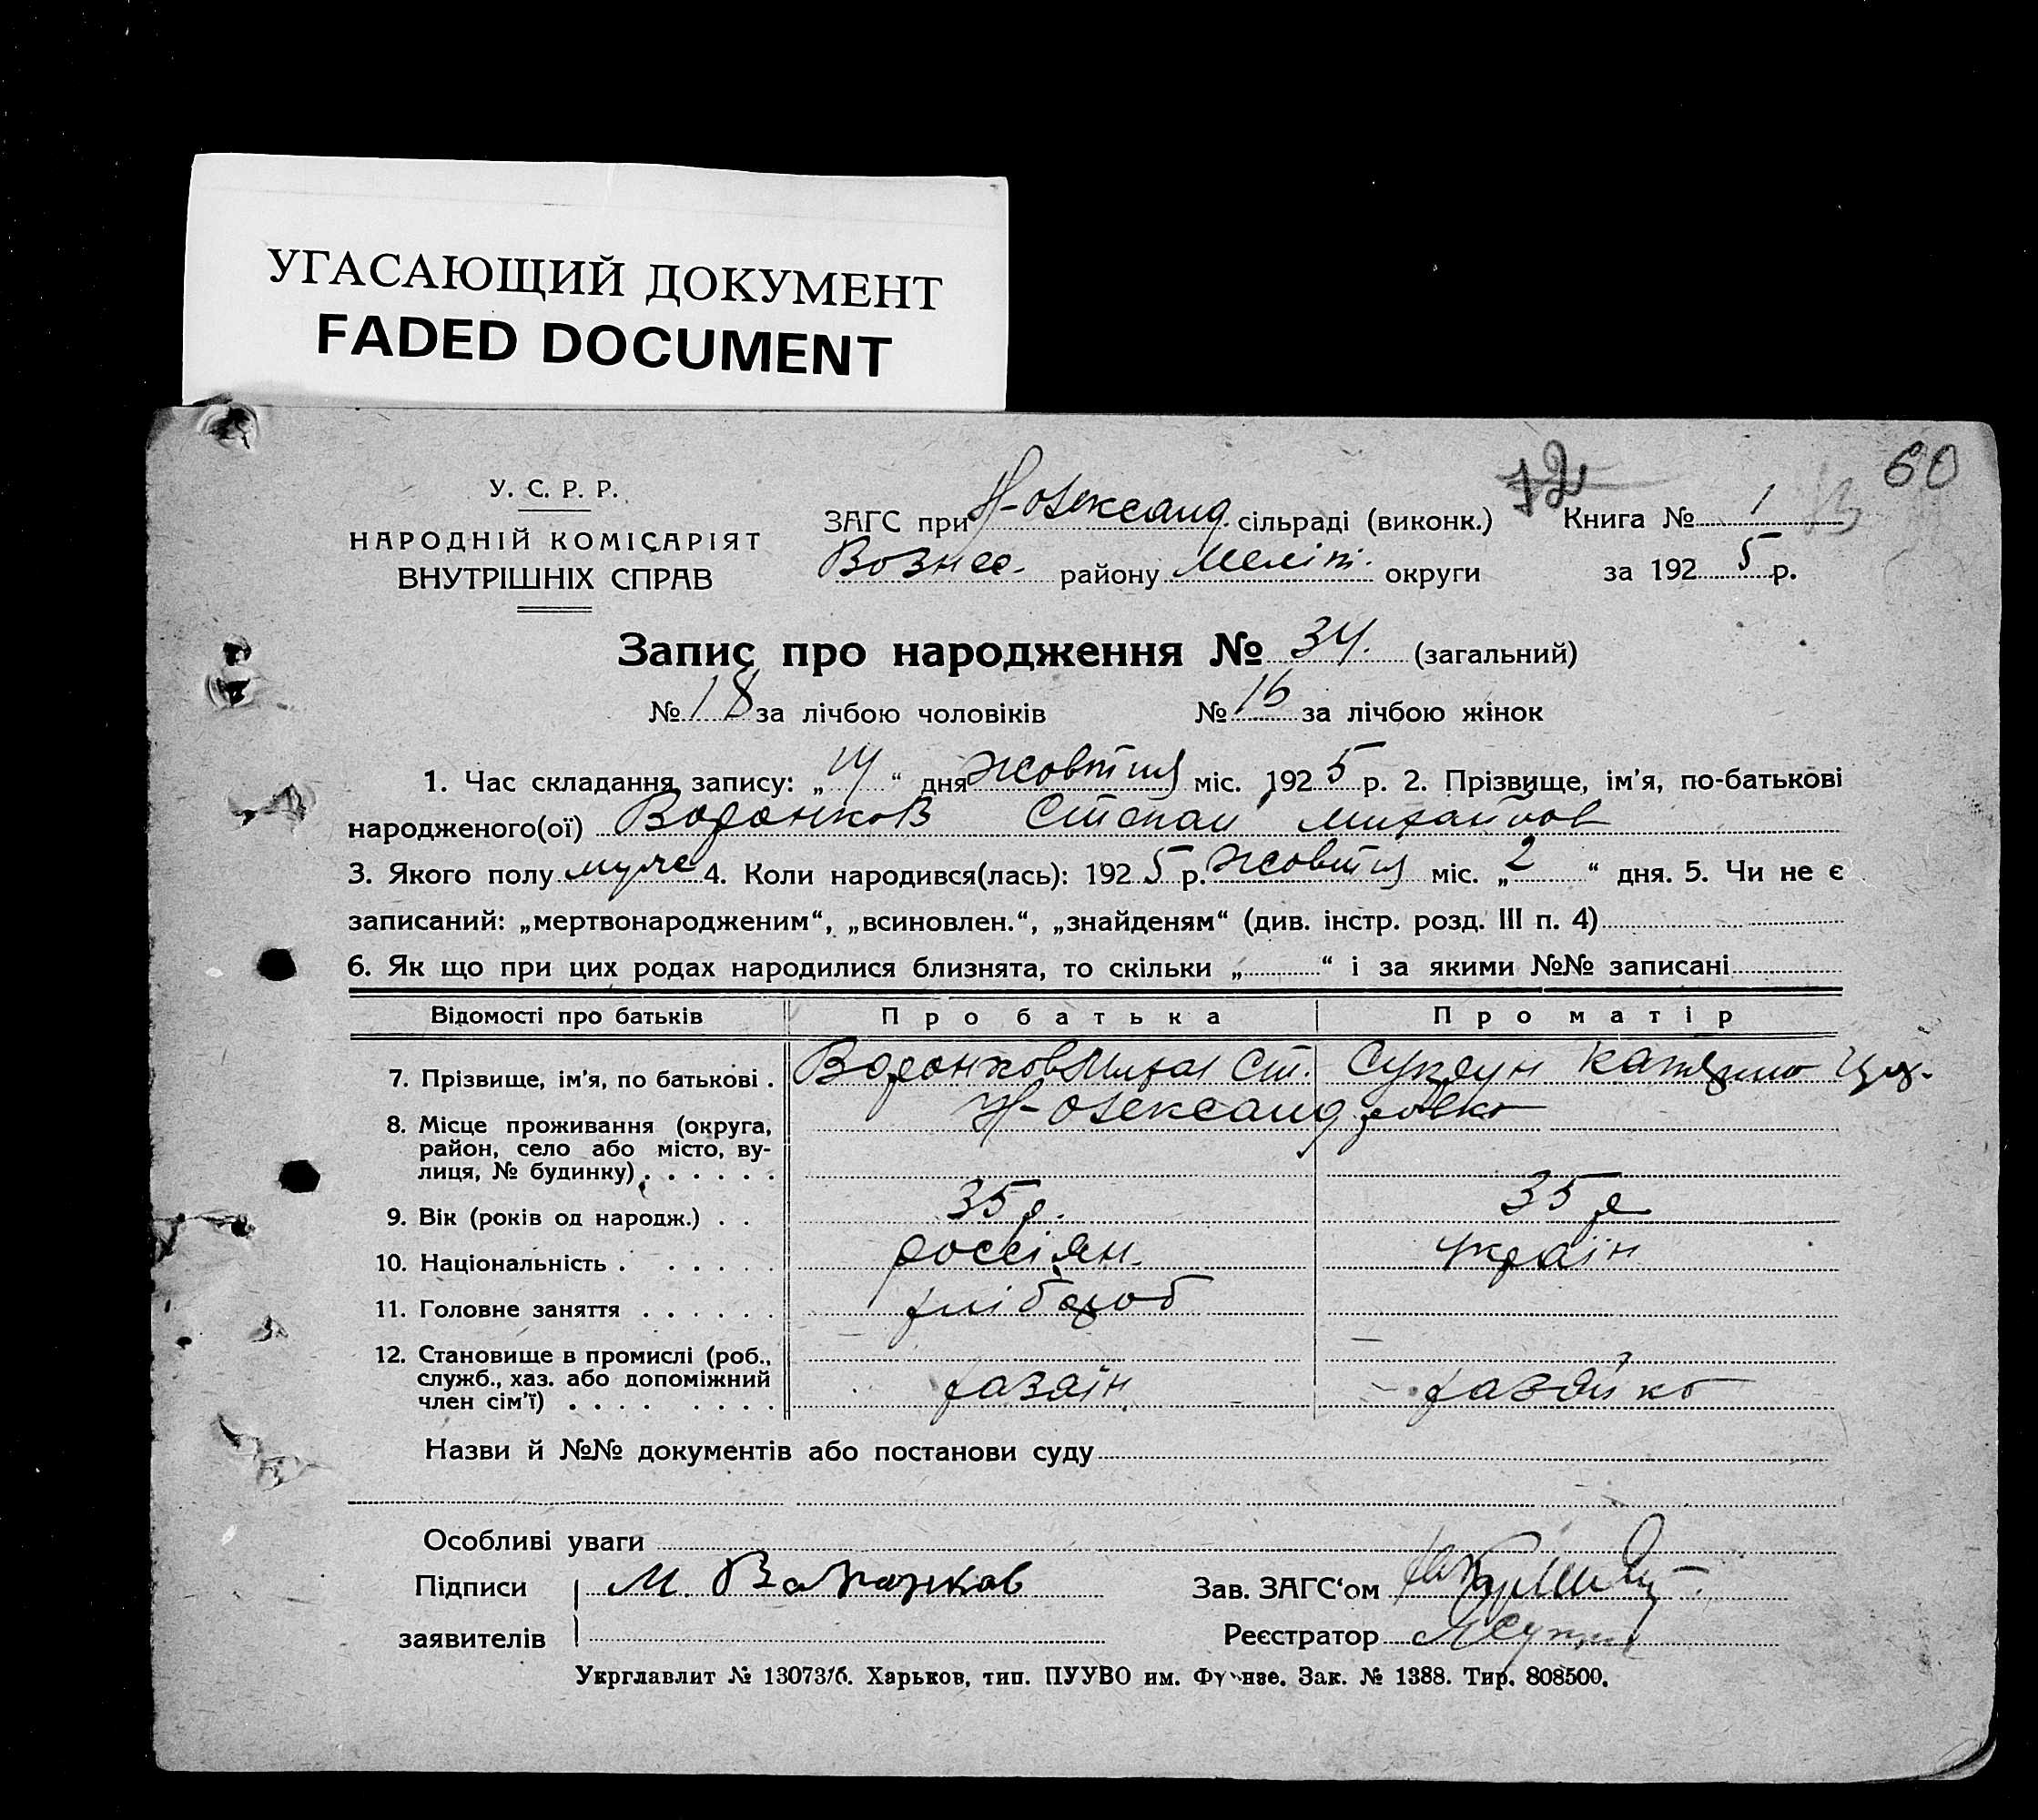 УГАСАЮЩИЙ ДОКУМЕНТ
FADED DOCUMENT
60
12
У. С. Р. Р.
НАРОДНІЙ КОМІСАРІЯТ
ВНУТРІШНІХ СПРАВ
ЗАГС при Н-Олександ. сільраді (виконк.) Книга № 1
Вознес. району Меліт. округи за 1925 р.
Запис про народження № 34. (загальний)
№ 18 за лічбою чоловіків № 16 за лічбою жінок
1. Час складання запису: „14“ дня Жовтня міс. 1925 р. 2. Прізвище, ім'я, по-батькові
народженого(ої) Воронков Степан Михайлов
3. Якого полу муже 4. Коли народився(лась): 1925 р. Жовтня міс. „2“ дня. 5. Чи не є
записаний: „мертвонародженим“, „всиновлен.“, „знайденям“ (див. інстр. розд. III п. 4)
6. Як що при цих родах народилися близнята, то скільки „ “ і за якими №№ записані
Відомості про батьків Про батька Про матір
7. Прізвище, ім'я, по батькові . Воронков Михаіл Ст.
8. Місце проживання (округа, Н-Олександровка
район, село або місто, ву-
лиця, № будинку) . . . . . .
9. Вік (років од народж.) . . 35 р. 35 р
10. Національність . . . . . . россіян. україн
11. Головне заняття . . . . . . хлібороб
12. Становище в промислі (роб.,
служб., хаз. або допоміжний хазяїн хазяйка
член сім'ї) . . . . . . . .
Назви й №№ документів або постанови суду
Особливі уваги
Підписи М. Варанков Зав. ЗАГС‘ом
заявителів Реєстратор
Укрглавлит № 13073/б. Харьков, тип. ПУУВО им. Фрунзе. Зак. № 1388. Тир. 808500.